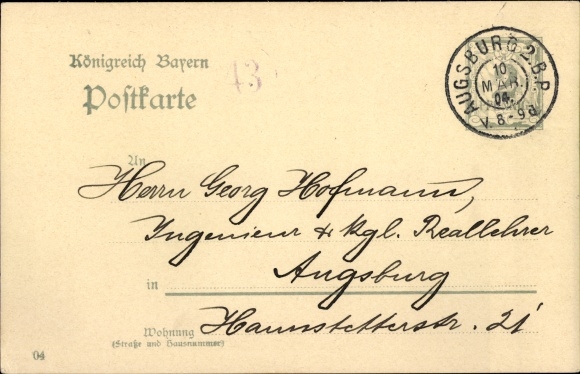 Königreich Bayern
43
Postkarte
AUGSBURG 2.B.P.
10
MÄR.
04.
V. 8-9
An
Herrn Georg Hofmann,
Ingenieur & kgl. Reallehrer
in Augsburg
Wohnung Haunstetterstr. 21
(Straße und Hausnummer)
04